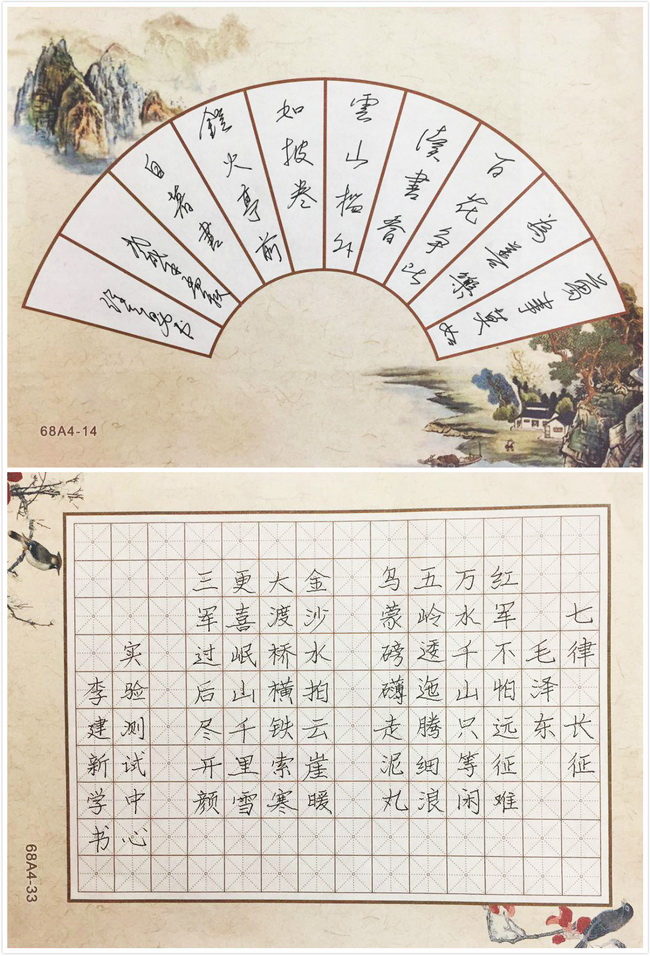 萬事莫如
為善樂
百花争比
讀書香
雲山槛外
如披卷
鐙火亭前
自著書
68A4-14
七律 长征
毛泽东
红军不怕远征难
万水千山只等闲
五岭逶迤腾细浪
乌蒙磅礴走泥丸
金沙水拍云崖暖
大渡桥横铁索寒
更喜岷山千里雪
三军过后尽开颜
实验测试中心
李建新学书
68A4-33